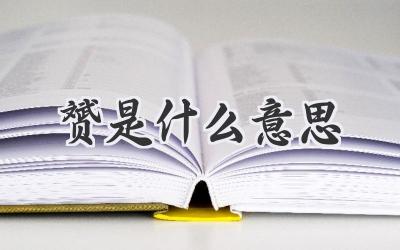 赟是什么意思